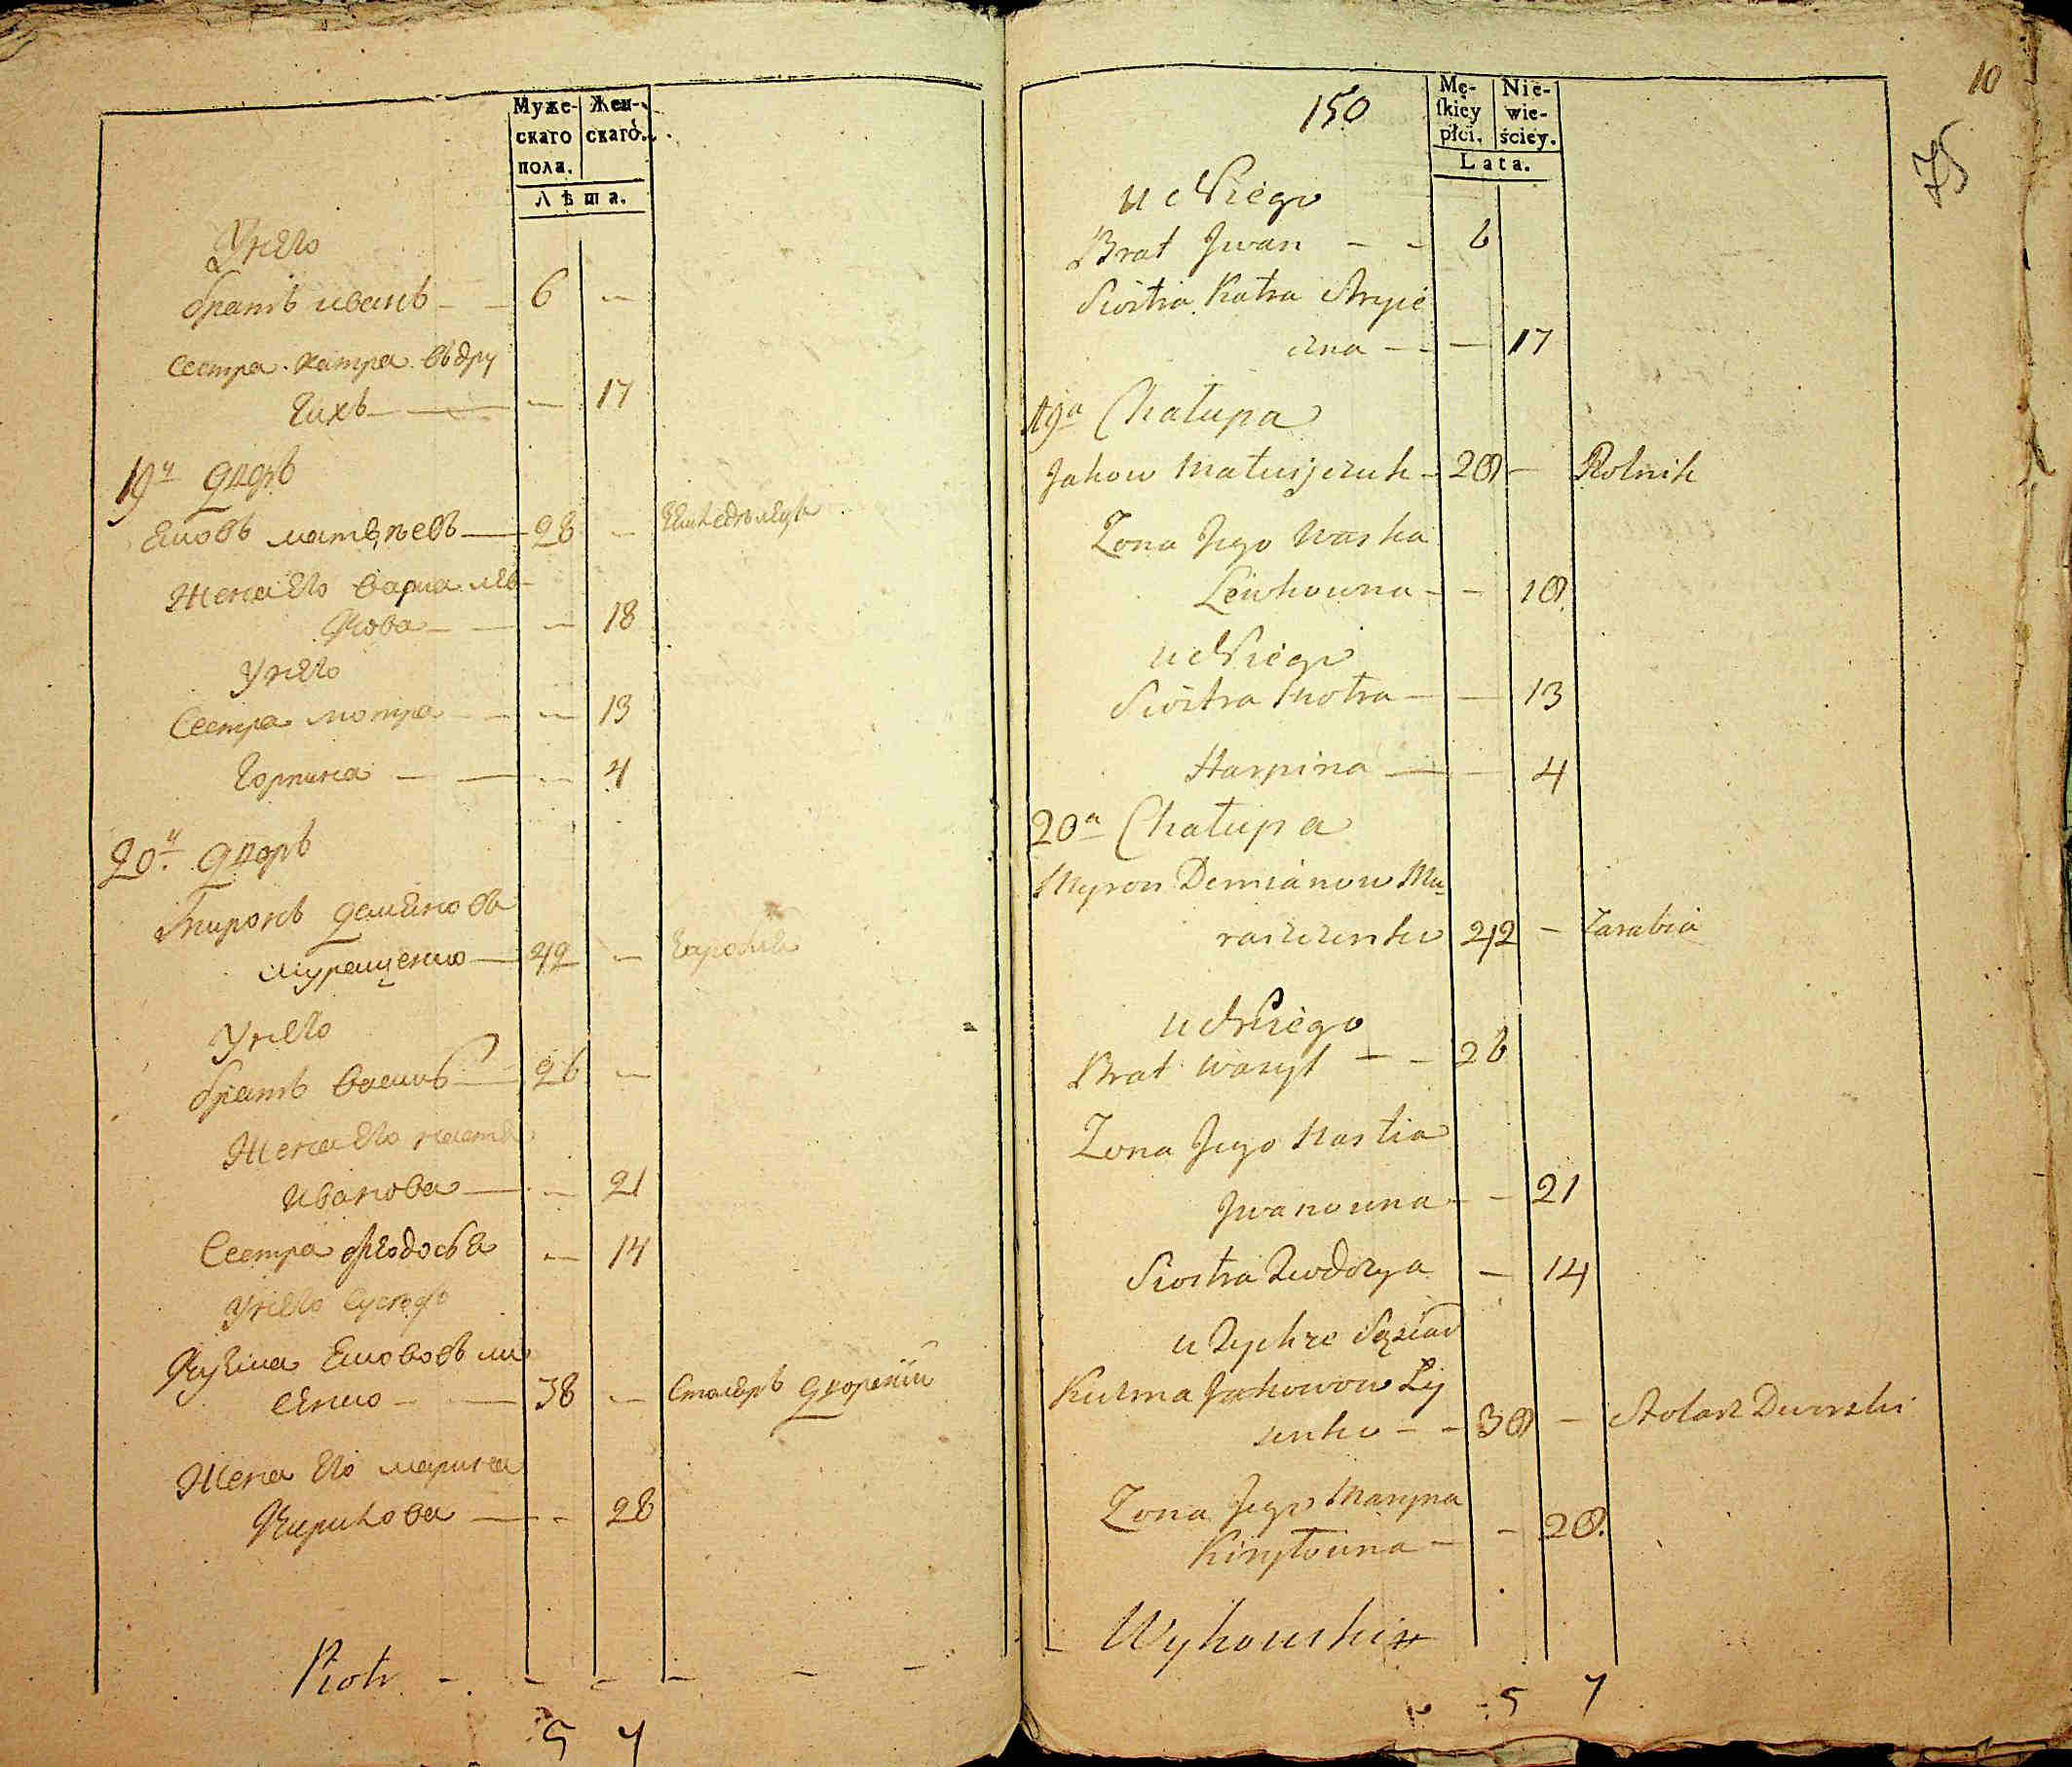 Муже-
скаго
пола.
Жен-
скаго.
Лѣта.
Унего
братъ иванъ — — 6 —
Сестра катра въдру
гихъ — — 17
19й дворъ
Яковъ матвѣевъ — 28 —
Жена его васка лев
кова — — — 18
Унего
Сестра мотра — — — 13
Горпина — — — 4
20й дворъ
Миронъ демяновъ
муращенко — 42 —
Унего
братъ василь — 26 —
Жена его настя
Иванова — — 21
Сестра феодосья — 14
Унего
Кузма Якововъ ли
сенко — — 38 — Столяръ дворскiй
Жена его марина
Кирилова — — 28
Piotr — — — — — —
5 7
10
75
150
Mę-
ſkiey
płci.
Nie-
wie-
ściey.
Lata.
u Niego
Brat Jwan — — 6
Siostra Katra Stryie
czna — — — 17
19a Chałupa
Jakow Matwijczuk — 28 — Rolnik
Zona Jego Waska
Lewkowna — — 18.
u Niego
Siostra Motra — — 13
Harpina — — 4
20a Chałupa
Myron Demianow Mu-
raszczenko 42 — Zarabia
u Niego
Brat Wasyl — — 26
Zona Jego Nastia
Jwanowna — — 21
Siostra Teodozya — 14
u Tychze Sąsiad
Kuzma Jakowow Ly
senko — — 38 — Stolarz Dworski
Zona Jego Maryna
Kiryłowna — — 28.
— Wykowski
5 7